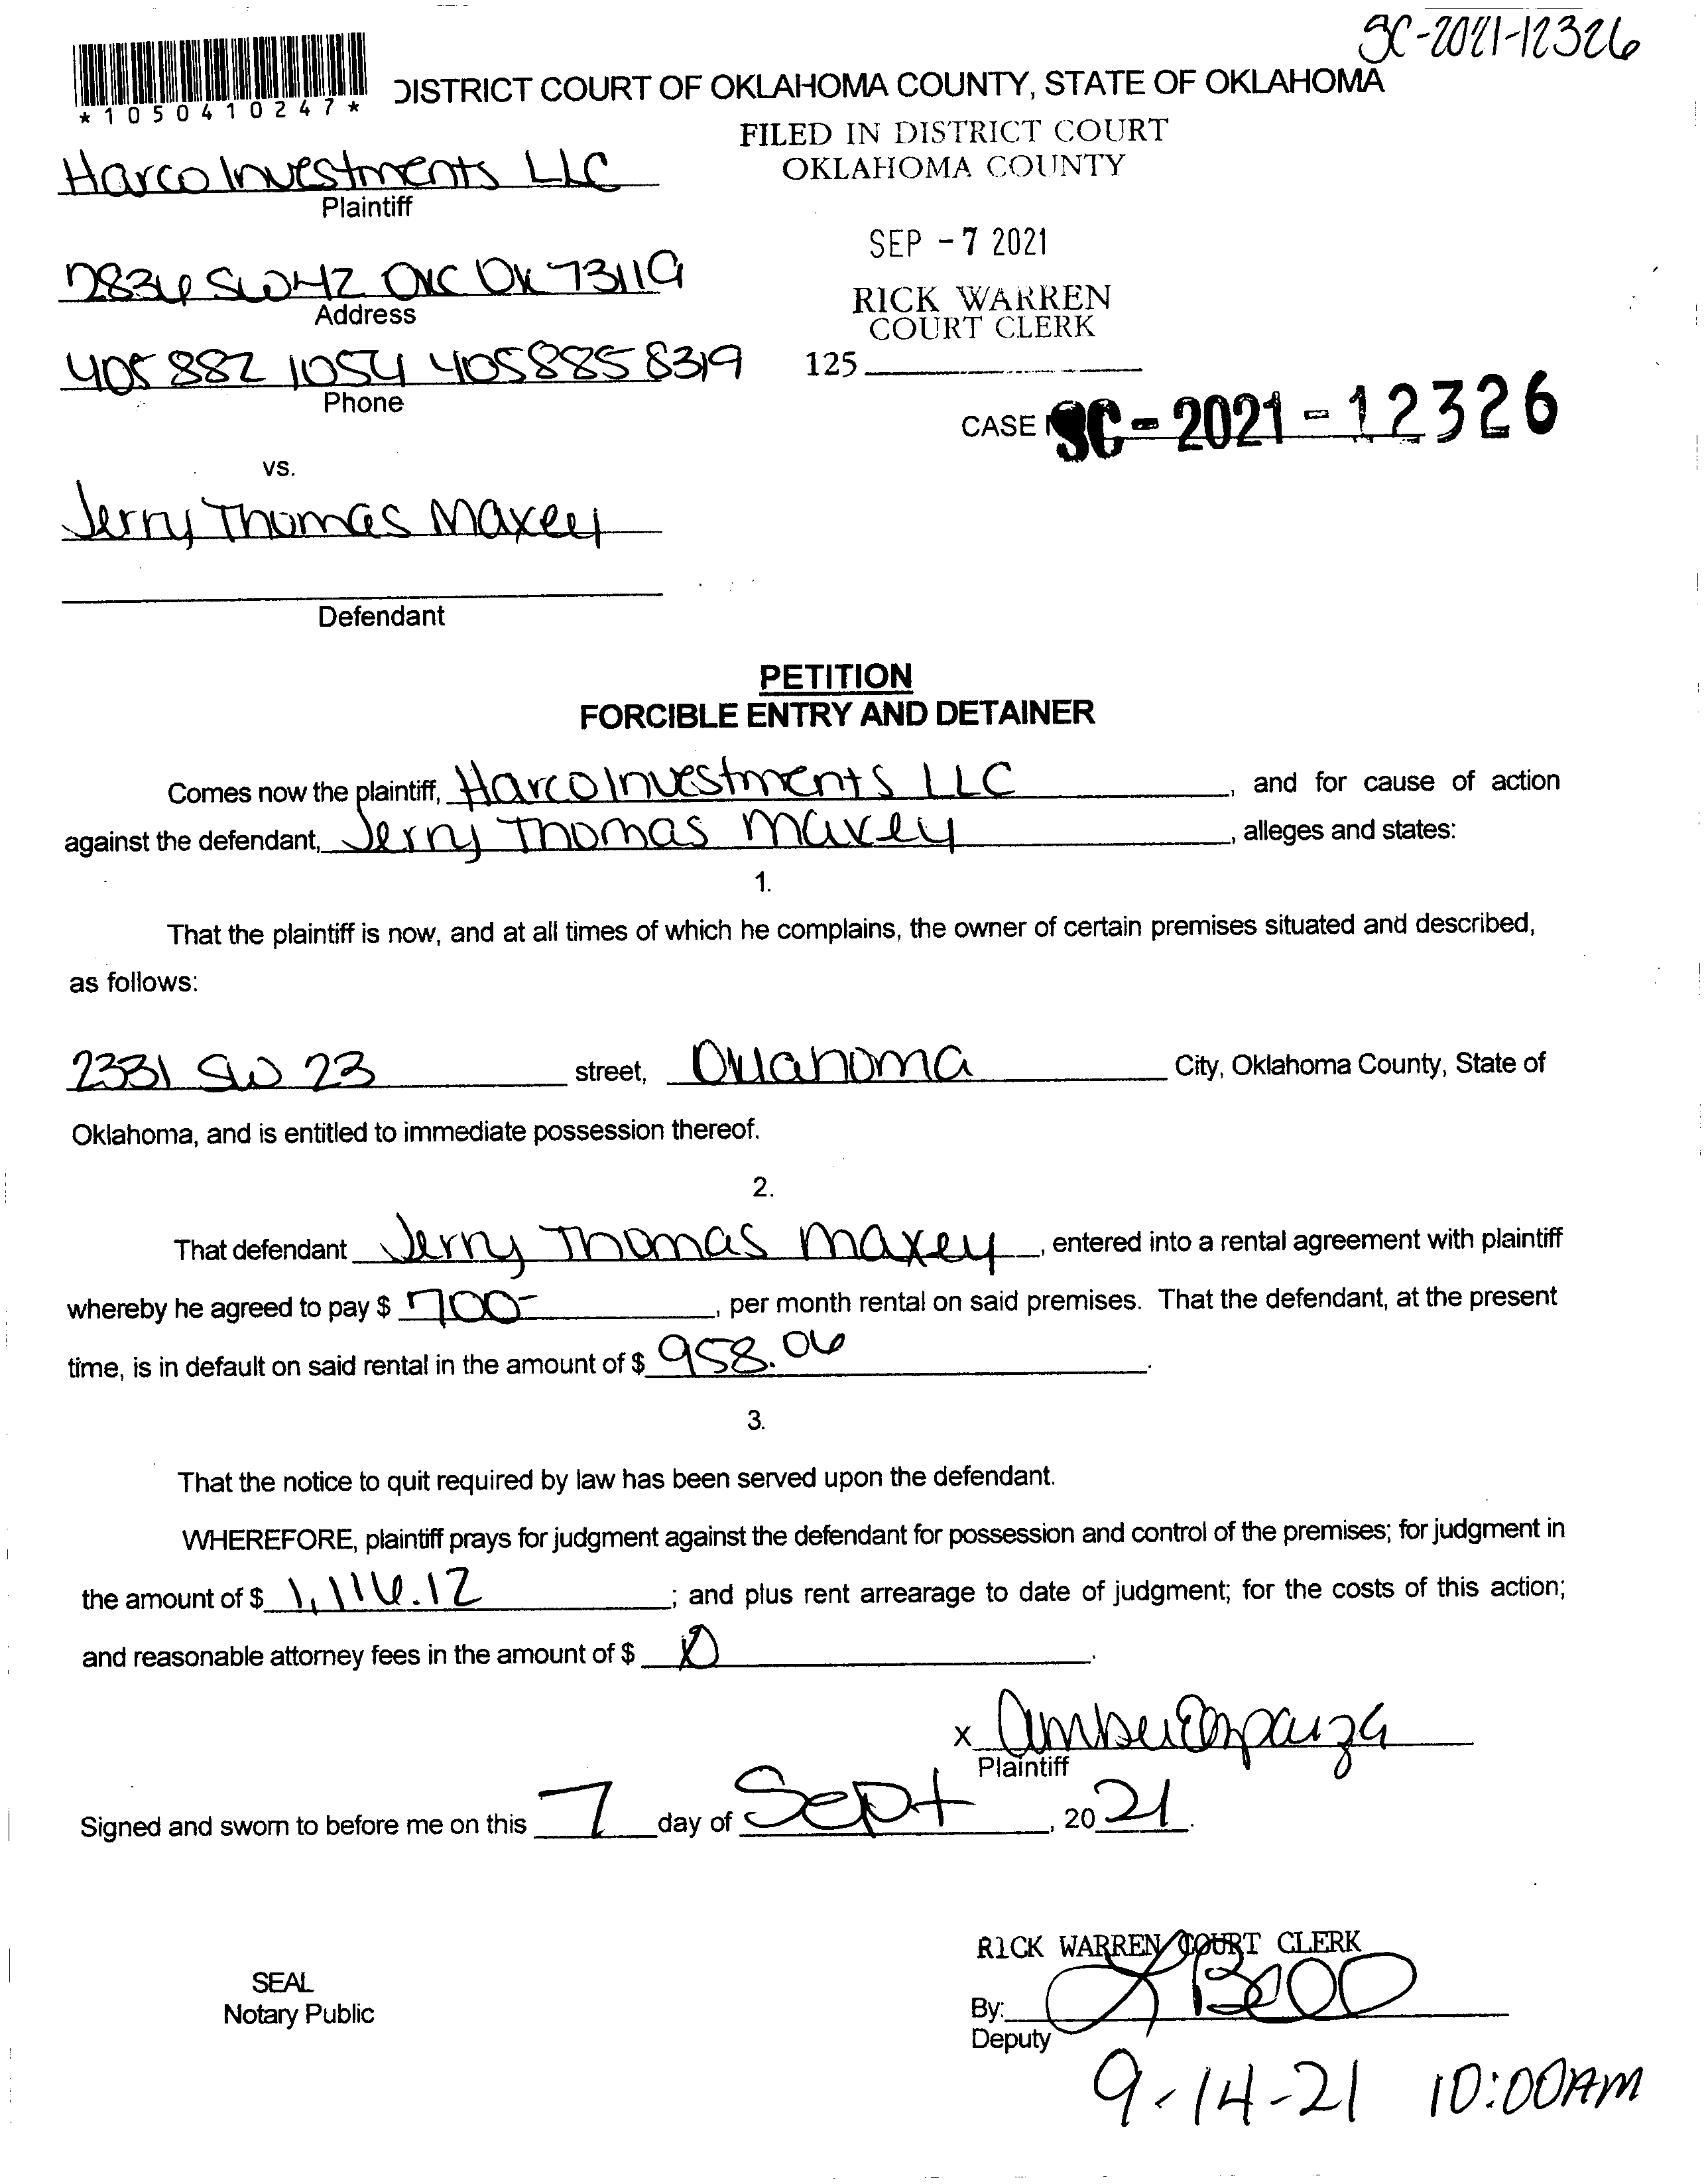 SC-2021-12326
*1050410247*
DISTRICT COURT OF OKLAHOMA COUNTY, STATE OF OKLAHOMA
FILED IN DISTRICT COURT
OKLAHOMA COUNTY
Harco Investments LLC
Plaintiff
SEP -7 2021
2836 SW 42 OKC OK 73119
Address
RICK WARREN
COURT CLERK
405 882 1054 405 885 8319
Phone
125
CASE SC-2021-12326
vs.
Jerry Thomas Maxey
Defendant
PETITION
FORCIBLE ENTRY AND DETAINER
Comes now the plaintiff, Harco Investments LLC, and for cause of action
against the defendant, Jerry Thomas Maxey, alleges and states:
1.
That the plaintiff is now, and at all times of which he complains, the owner of certain premises situated and described,
as follows:
2331 SW 23 street, Oklahoma City, Oklahoma County, State of
Oklahoma, and is entitled to immediate possession thereof.
2.
That defendant Jerry Thomas Maxey, entered into a rental agreement with plaintiff
whereby he agreed to pay $ 700-, per month rental on said premises. That the defendant, at the present
time, is in default on said rental in the amount of $ 958.06.
3.
That the notice to quit required by law has been served upon the defendant.
WHEREFORE, plaintiff prays for judgment against the defendant for possession and control of the premises; for judgment in
the amount of $ 1,116.12; and plus rent arrearage to date of judgment; for the costs of this action;
and reasonable attorney fees in the amount of $ 0.
x Amber Esparza
Plaintiff
Signed and sworn to before me on this 7 day of Sept, 2021.
RICK WARREN COURT CLERK
SEAL
Notary Public
By:
Deputy
9-14-21 10:00AM